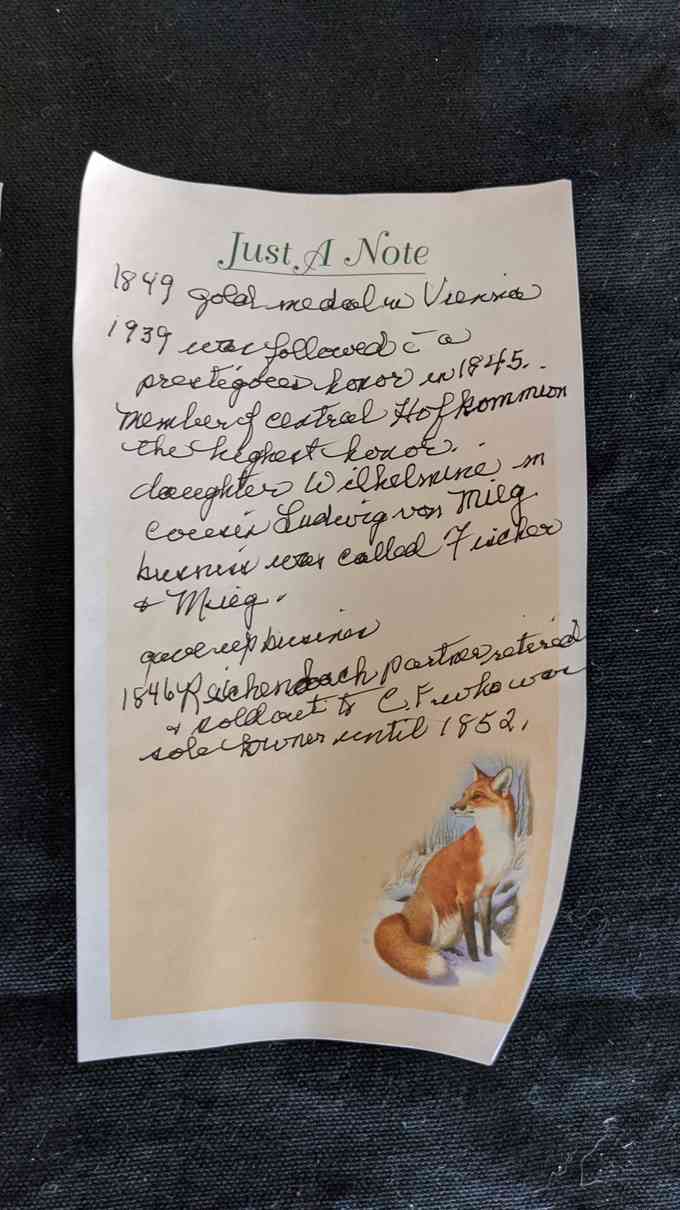 Just A Note
1849 gold medal in Vienna
1939 was followed c̄ a
prestigous honor in 1845.
Member of central Hofkommion
the highest honor.
daughter Wilhelmine m
cousin Ludwig von Mieg
business was called Fischer
& Mieg.
gave up business
1846 Reichenbach partner retired
& sold out to C.F. who was
sole owner until 1852.